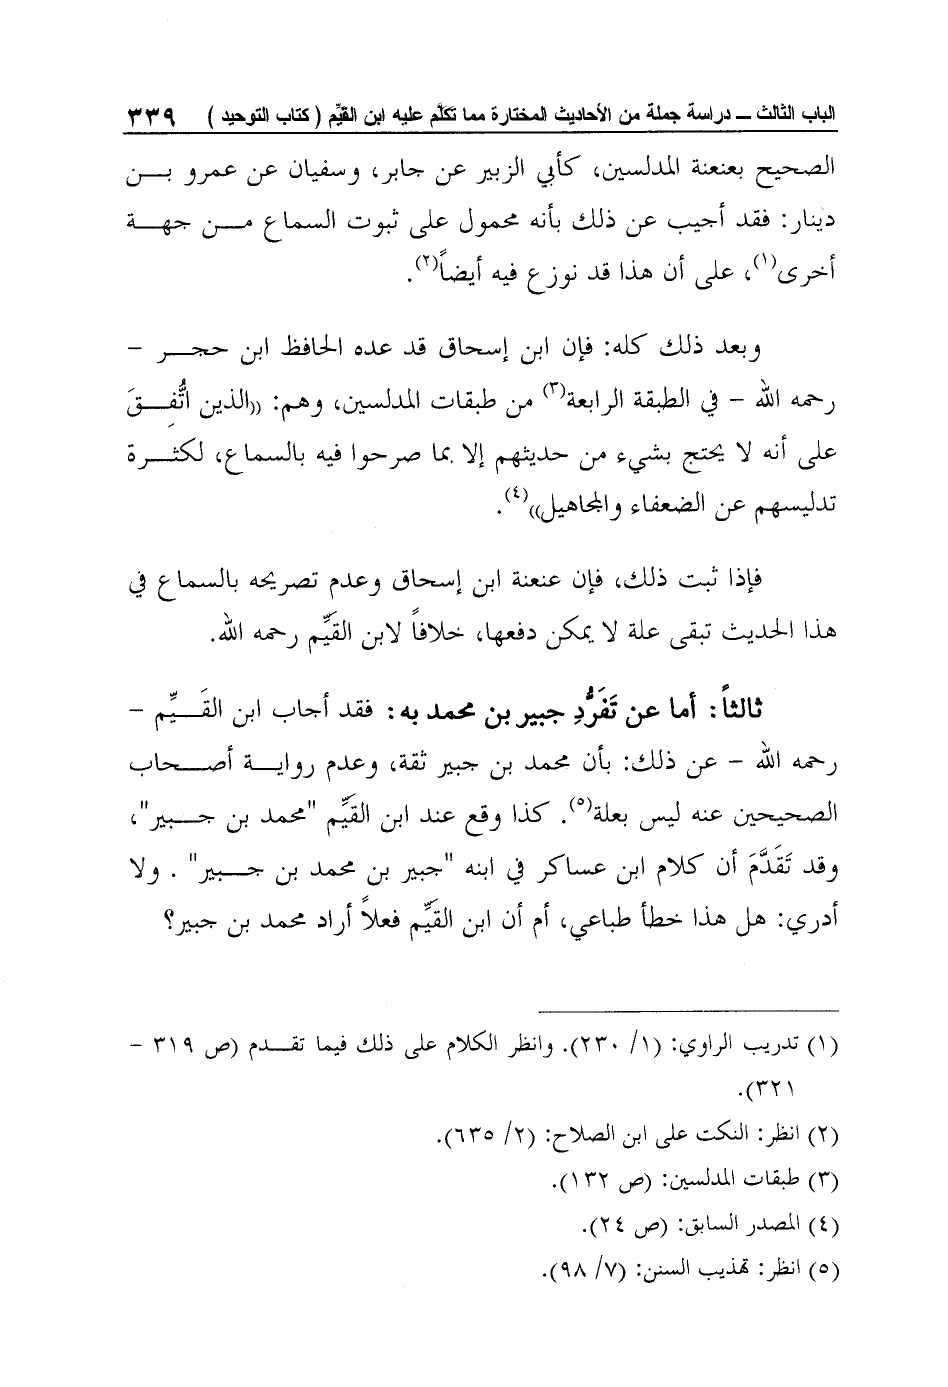 الباب الثالث ــ دراسة جملة من الأحاديث المختارة مما تكلَّم عليه ابن القيِّم ( كتاب التوحيد ) ٣٣٩
الصحيح بعنعنة المدلسين، كأبي الزبير عن جابر، وسفيان عن عمرو بن
دينار: فقد أجيب عن ذلك بأنه محمول على ثبوت السماع من جهة
أخرى(١)، على أن هذا قد نوزع فيه أيضاً(٢).
وبعد ذلك كله: فإن ابن إسحاق قد عده الحافظ ابن حجر –
رحمه الله – في الطبقة الرابعة(٣) من طبقات المدلسين، وهم: ((الذين اتُّفِقَ
على أنه لا يحتج بشيء من حديثهم إلا بما صرحوا فيه بالسماع، لكثرة
تدليسهم عن الضعفاء والمجاهيل))(٤).
فإذا ثبت ذلك، فإن عنعنة ابن إسحاق وعدم تصريحه بالسماع في
هذا الحديث تبقى علة لا يمكن دفعها، خلافاً لابن القَيِّم رحمه الله.
ثالثاً: أما عن تَفَرُّدِ جبير بن محمد به: فقد أجاب ابن القَيِّم –
رحمه الله – عن ذلك: بأن محمد بن جبير ثقة، وعدم رواية أصحاب
الصحيحين عنه ليس بعلة(٥). كذا وقع عند ابن القَيِّم "محمد بن جبير"،
وقد تَقَدَّمَ أن كلام ابن عساكر في ابنه "جبير بن محمد بن جبير" . ولا
أدري: هل هذا خطأ طباعي، أم أن ابن القَيِّم فعلاً أراد محمد بن جبير؟
(١) تدريب الراوي: (١/ ٢٣٠). وانظر الكلام على ذلك فيما تقدم (ص ٣١٩ –
٣٢١).
(٢) انظر: النكت على ابن الصلاح: (٢/ ٦٣٥).
(٣) طبقات المدلسين: (ص ١٣٢).
(٤) المصدر السابق: (ص ٢٤).
(٥) انظر: تهذيب السنن: (٧/ ٩٨).